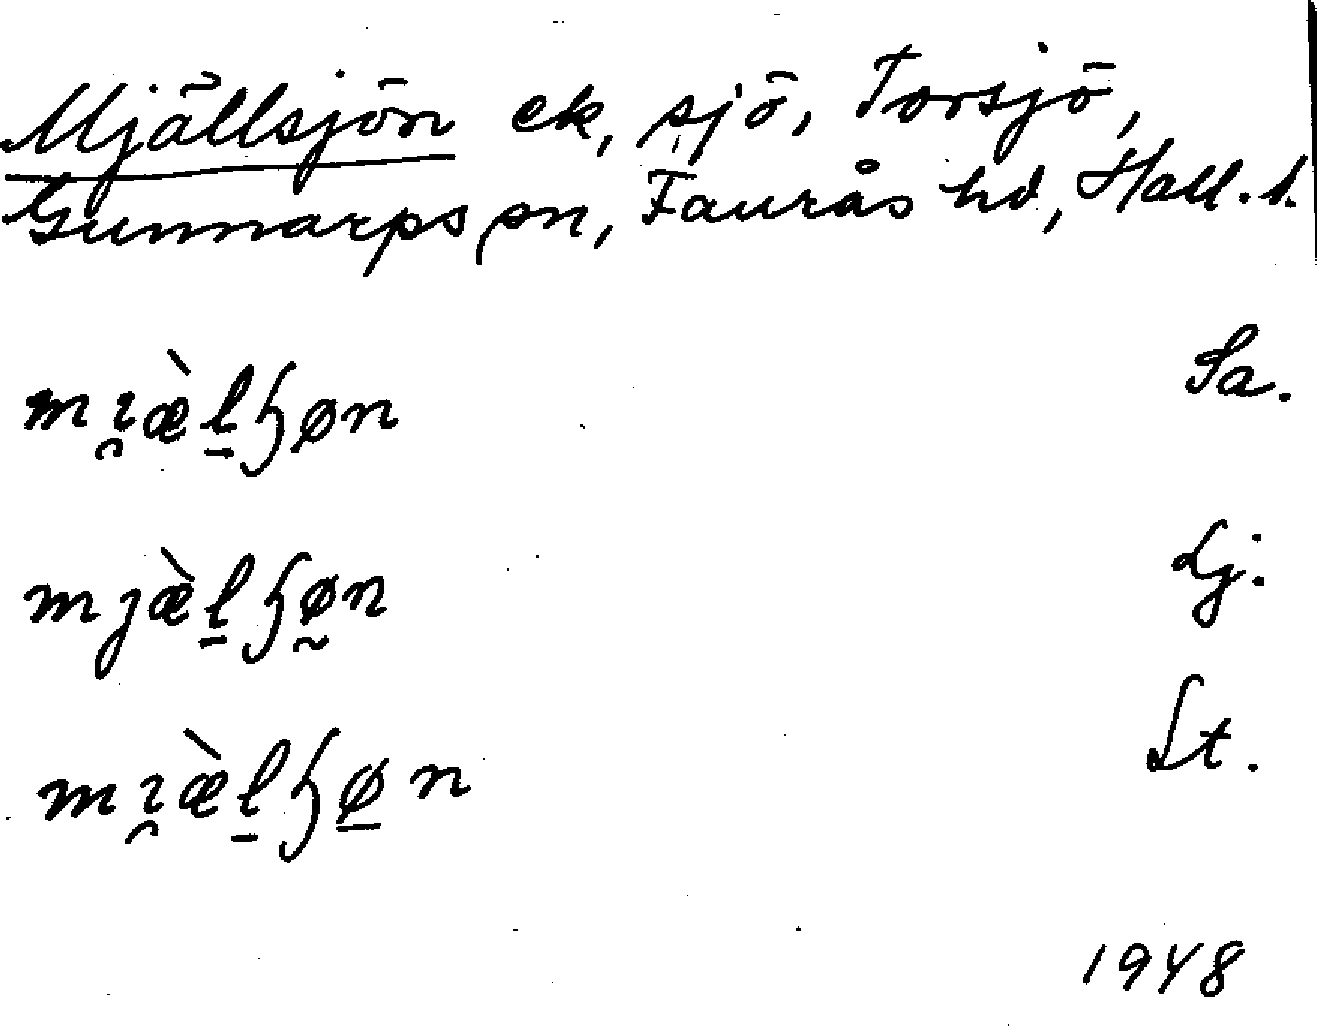 Mjällsjön ek, sjö, Torsjö,
Gunnarps sn, Faurås hd, Hall. l.
mı̯æ̀l̠ɧøn Sa.
mjæ̀l̠ɧø̰n Lj.
mı̯æ̀l̠ɧø̠n St.
1948